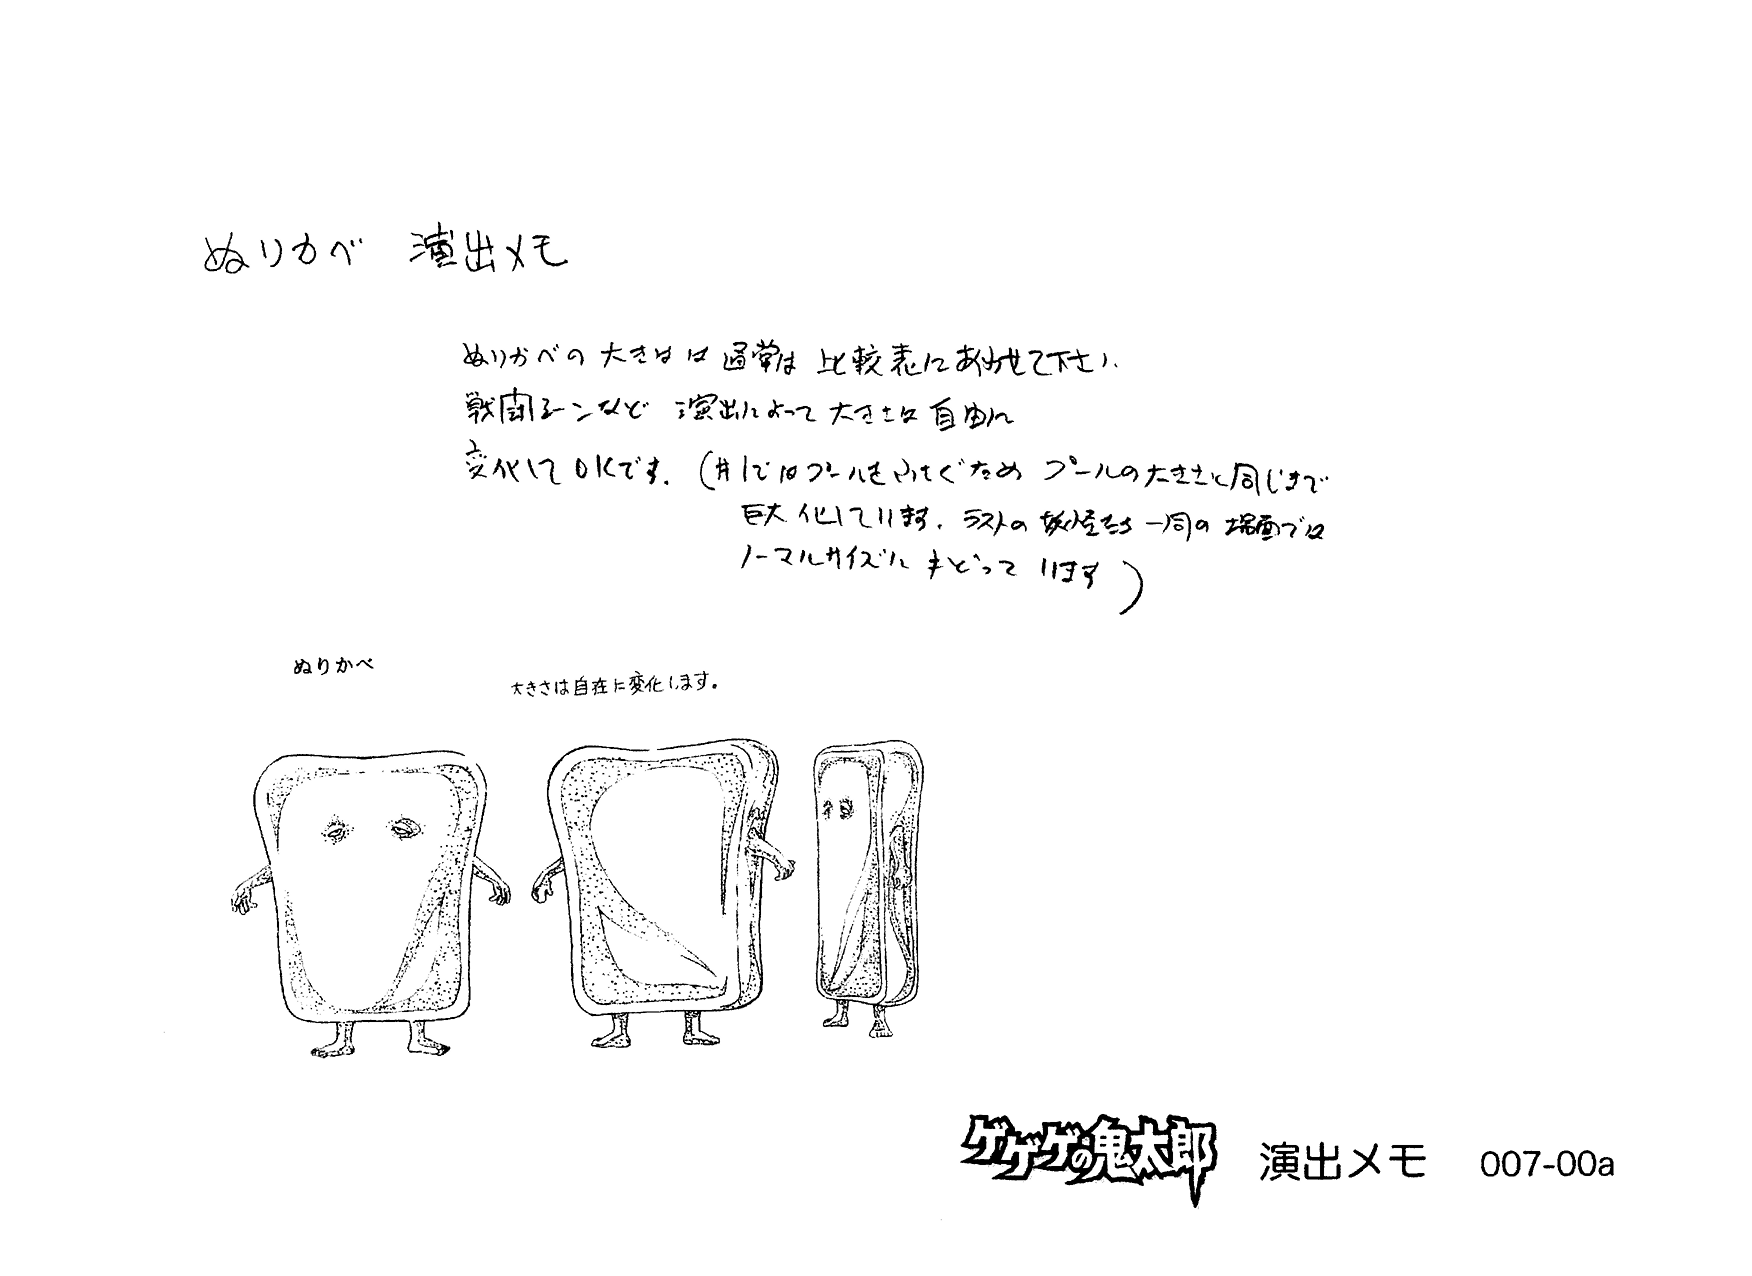 ぬりかべ 演出メモ
ぬりかべの大きさは通常は比較表にあわせて下さい.
戦闘シーンなど 演出によって大きさは自由に
変化してOKです. (#1ではプールをふさぐため プールの大きさと同じまで
巨大化しています. ラストの妖怪たち一同の場面では
ノーマルサイズにもどっています)
ぬりかべ
大きさは自在に変化します。
ゲゲゲの鬼太郎 演出メモ 007-00a